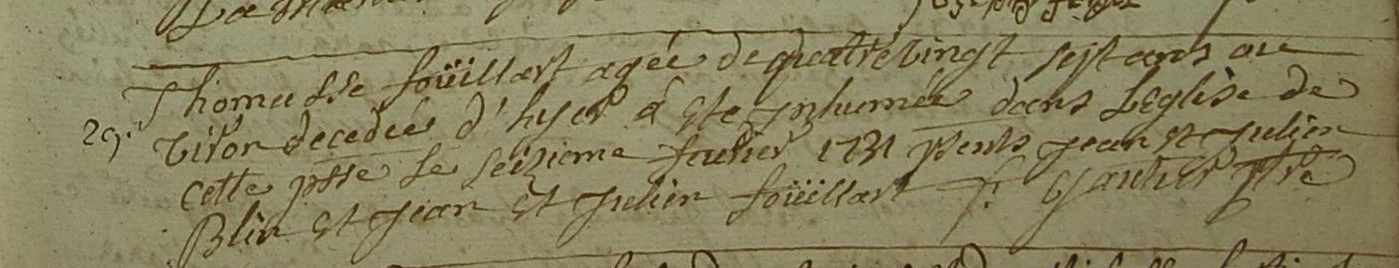 Thomasse foüillart agée de quatre vingt sept ans ou
29. viron decedée d'hyer a ete inhumée dans Leglise de
cette psse le seizieme feuvrier 1731 pnts jean et julien
Blin et jean et julien foüillart f. gautier ptre